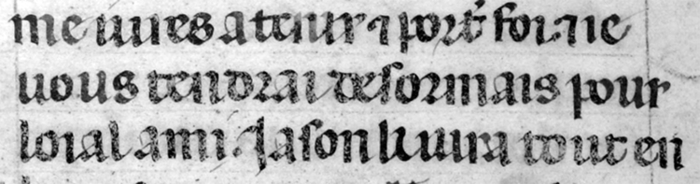 me uures a tenir ⁊ port foi ⁊ ie
uous tendrai desormais pour
loial ami. Jason li iura tout en